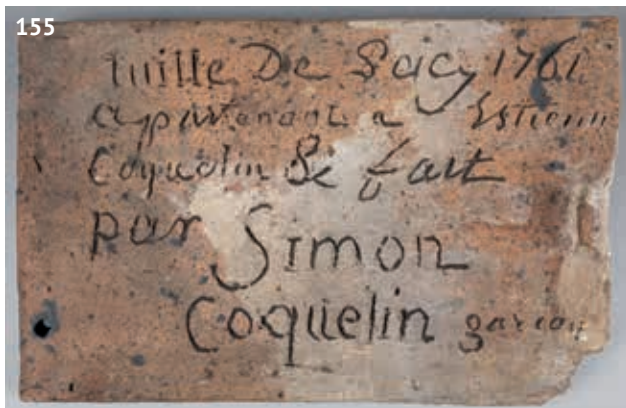 155
tuille De Sacy 1761
appartenant a Estienn
Coquelin &e fait
par Simon
Coquelin garcon